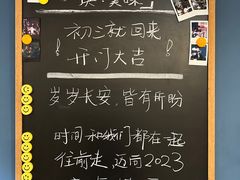 初三就回来
开门大吉
岁岁长安,皆有所盼
时间和我们都在一起
往前走,迈向2023